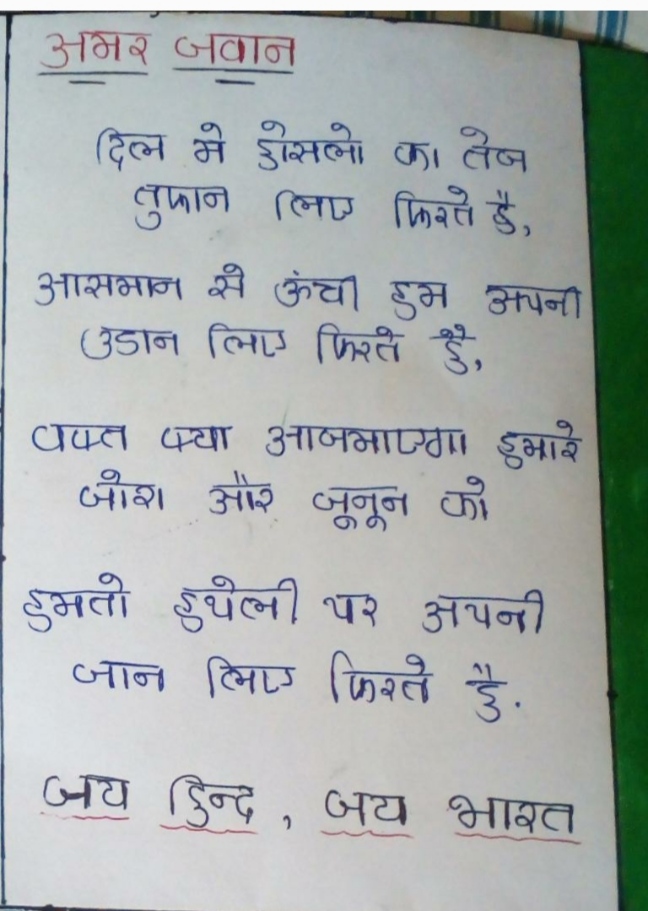 अमर जवान
दिल मे होसलो का तेज
तुफान लिए फिरते है,
आसमान से ऊंची हम अपनी
उडान लिए फिरते है,
वक्त क्या आजमाएगा हमारे
जोश और जूनून को
हमतो हथेली पर अपनी
जान लिए फिरते है.
जय हिन्द, जय भारत